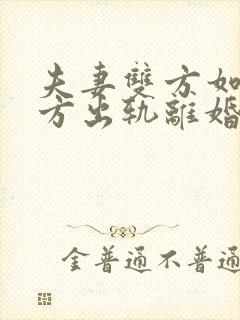 夫妻雙方如
方出軌離婚
金普通不普通